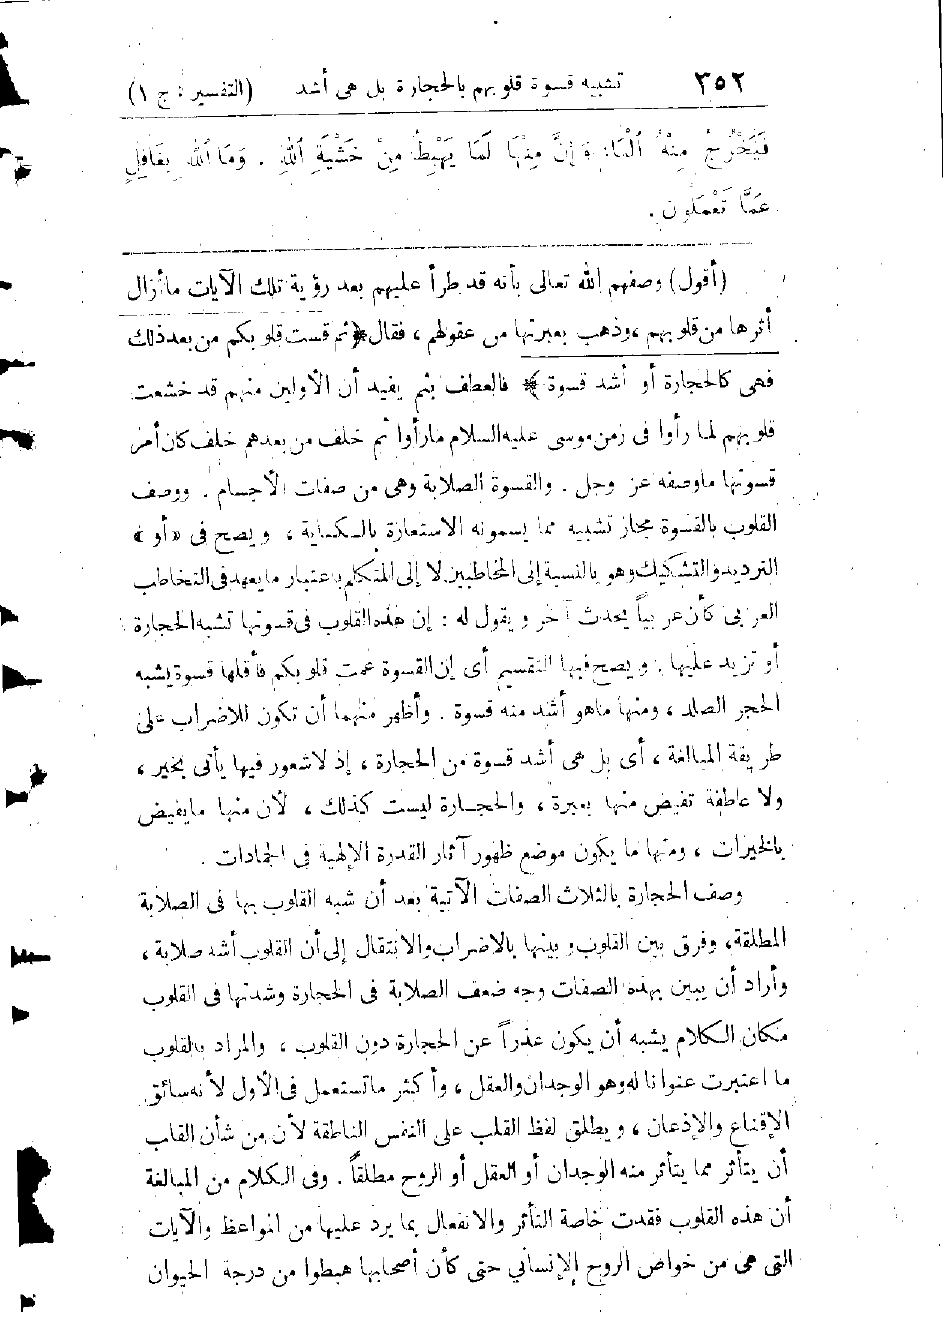 ٣٥٢ تشبيه قسوة قلوبهم بالحجارة بل هى أشد (التفسير : ج ١)
فَيَخْرُجُ مِنْهُ ٱلْمَاءُ وَإِنَّ مِنْهَا لَمَا يَهْبِطُ مِنْ خَشْيَةِ ٱللهِ . وَمَا ٱللهُ بِغَافِلٍ
عَمَّا تَعْمَلُون .
(أقول) وصفهم الله تعالى بأنه قد طرأ عليهم بعد رؤية تلك الآيات ما أزال
أثرها من قلوبهم ، وذهب بعبرتها من عقولهم ، فقال ﴿ثم قست قلوبكم من بعد ذلك
فهى كالحجارة أو أشد قسوة ﴾ فالعطف بثم يفيد أن الأولين منهم قد خشعت
قلوبهم لما رأوا فى زمن موسى عليه السلام ما رأوا ثم خلف من بعدهم خلف كان أمر
قسوتها ما وصفه عز وجل . والقسوة الصلابة وهى من صفات الأجسام . ووصف
القلوب بالقسوة مجاز تشبيه مما يسمونه الاستعارة بالكناية ، ويصح فى «أو»
الترديد والتشكيك وهو بالنسبة إلى المخاطبين لا إلى المتكلم باعتبار ما يعهد فى التخاطب
العربى كأن عربياً يحدث آخر ويقول له : إن هذه القلوب فى قسوتها تشبه الحجارة
أو تزيد عليها . ويصح فيها التقسيم أى إن القسوة عمت قلوبكم فأقلها قسوة يشبه
الحجر الصلد ، ومنها ما هو أشد منه قسوة . وأظهر منهما أن تكون للاضراب على
طريقة المبالغة ، أى بل هى أشد قسوة من الحجارة ، إذ لا شعور فيها يأتى بخير ،
ولا عاطفة تفيض منها بعبرة ، والحجارة ليست كذلك ، لأن منها ما يفيض
بالخيرات ، ومنها ما يكون موضع ظهور آثار القدرة الإلهية فى الجمادات .
وصف الحجارة بالثلاث الصفات الآتية بعد أن شبه القلوب بها فى الصلابة
المطلقة ، وفرق بين القلوب وبينها بالاضراب والانتقال إلى أن القلوب أشد صلابة ،
وأراد أن يبين بهذه الصفات وجه ضعف الصلابة فى الحجارة وشدتها فى القلوب
فكان الكلام يشبه أن يكون عذراً عن الحجارة دون القلوب ، والمراد بالقلوب
ما اعتبرت عنوانا له وهو الوجدان والعقل ، وأكثر ما تستعمل فى الأول لأنه سائق
الإقناع والإذعان ، ويطلق لفظ القلب على النفس الناطقة لأن من شأن القلب
أن يتأثر مما يتأثر منه الوجدان أو العقل أو الروح مطلقاً . وفى الكلام من المبالغة
أن هذه القلوب فقدت خاصة التأثر والانفعال بما يرد عليها من المواعظ والآيات
التى هى من خواض الروح الإنسانى حتى كأن أصحابها هبطوا من درجة الحيوان